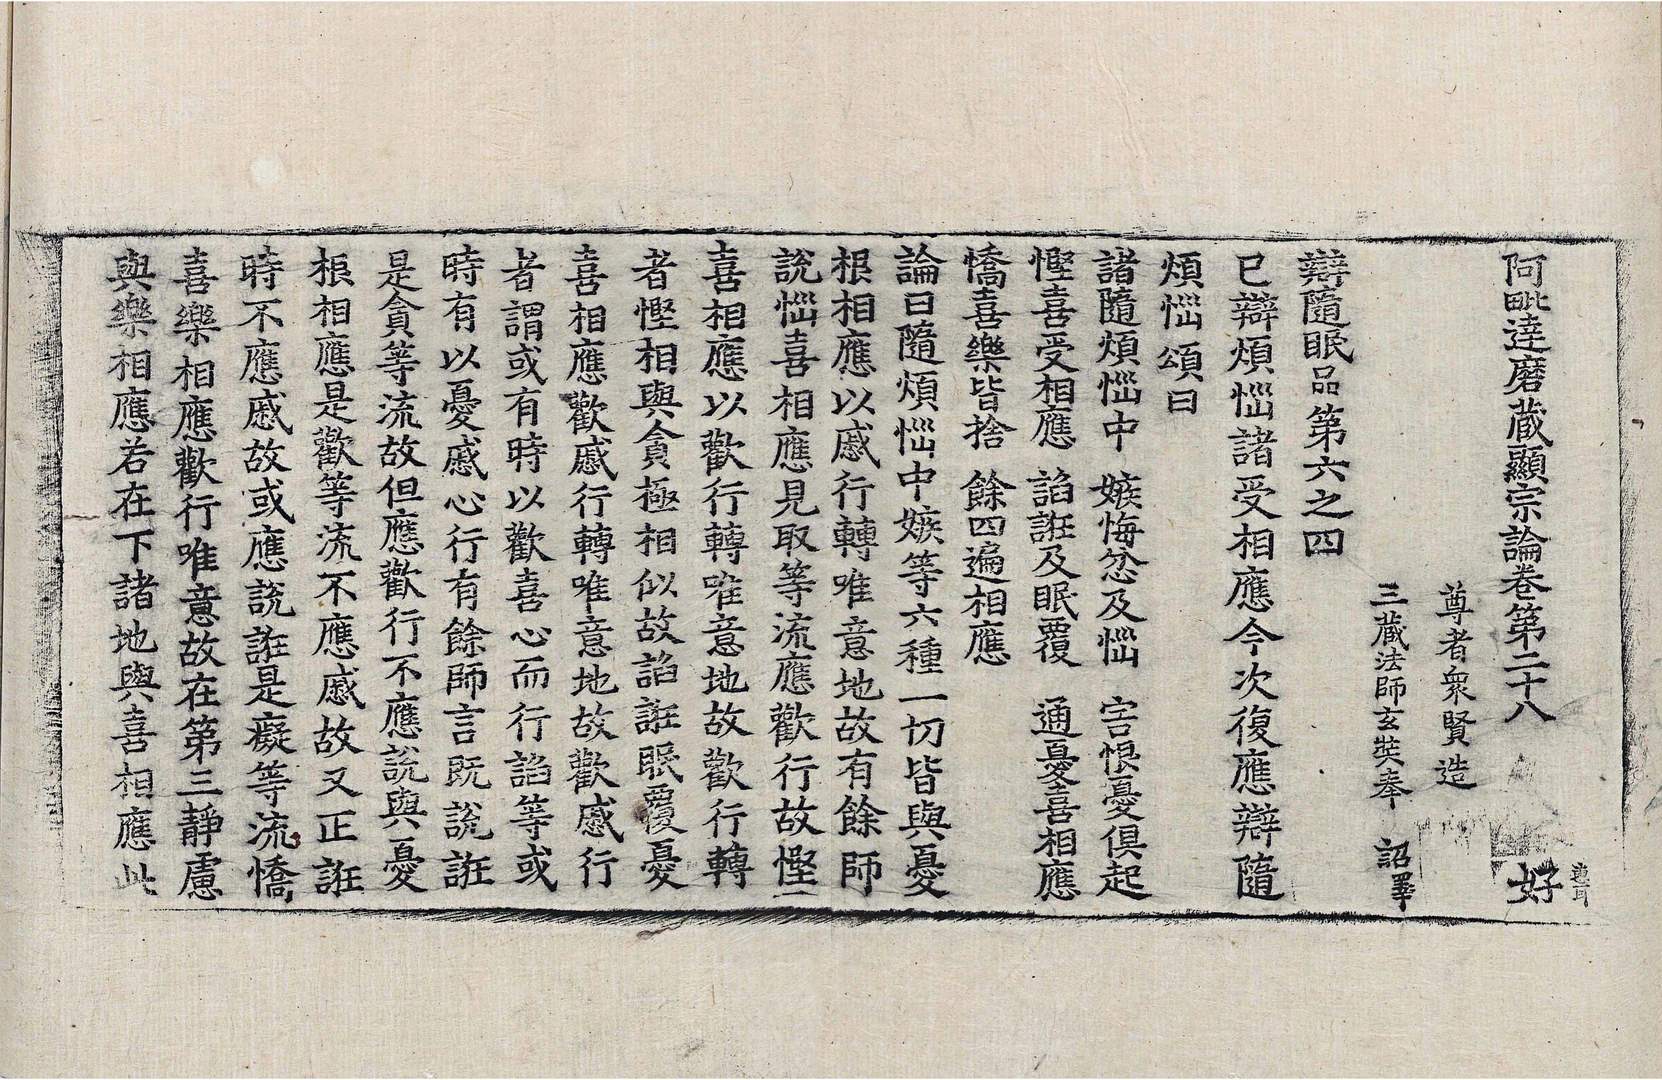 阿毗達磨藏顯宗論卷第二十八 好
尊者衆賢造
三藏法師玄奘奉 詔譯
辯隨眠品第六之四
已辯煩惱諸受相應今次復應辯隨
煩惱頌曰
諸隨煩惱中 嫉悔忿及惱 害恨憂俱起
慳喜受相應 諂誑及眠覆 通憂喜相應
憍喜樂皆捨 餘四遍相應
論曰隨煩惱中嫉等六種一切皆與憂
根相應以慼行轉唯意地故有餘師
說惱喜相應見取等流應歡行故慳
喜相應以歡行轉唯意地故歡行轉
者慳相與貪極相似故諂誑眠覆憂
喜相應歡慼行轉唯意地故歡慼行
者謂或有時以歡喜心而行諂等或
時有以憂慼心行有餘師言既說誑
是貪等流故但應歡行不應說與憂
根相應是歡等流不應慼故又正誑
時不應慼故或應說誑是癡等流憍
喜樂相應歡行唯意故在第三靜慮
與樂相應若在下諸地與喜相應此